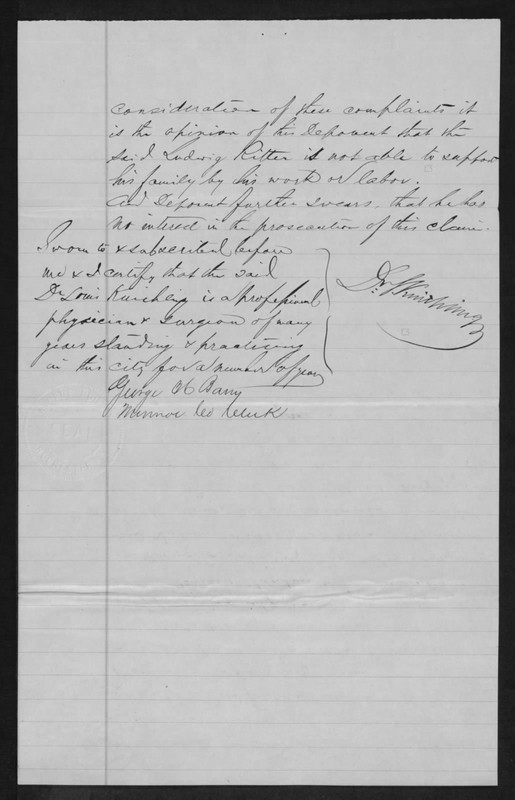 consideration of these complaints it
is the opinion of this Deponent that the
said Ludwig Ritter is not able to suppor
his family by his work or labor.
And Deponent further swears, that he has
no interest in the prosecution of this claim.
Sworn to & subscribed before
me & I certify that the said
Dr Louis is a professional
physician & Surgeon of many
years standing & practising
in this city for a number of years
George H Barry
Monroe Co Clerk
Dr